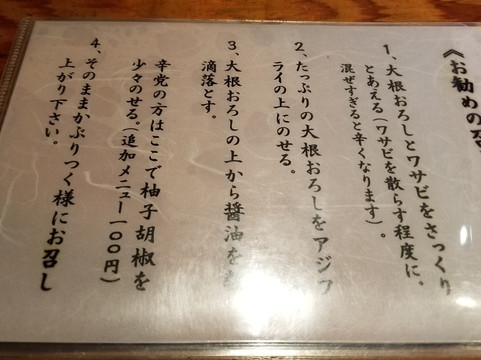 《お勧めの召
1、大根おろしとワサビをさっくり
とあえる(ワサビを散らす程度に。
混ぜすぎると辛くなります)。
2、たっぷりの大根おろしをアジフ
ライの上にのせる。
3、大根おろしの上から醤油を
滴落とす。
辛党の方はここで柚子胡椒を
少々のせる。(追加メニュー一〇〇円)
4、そのままかぶりつく様にお召し
上がり下さい。